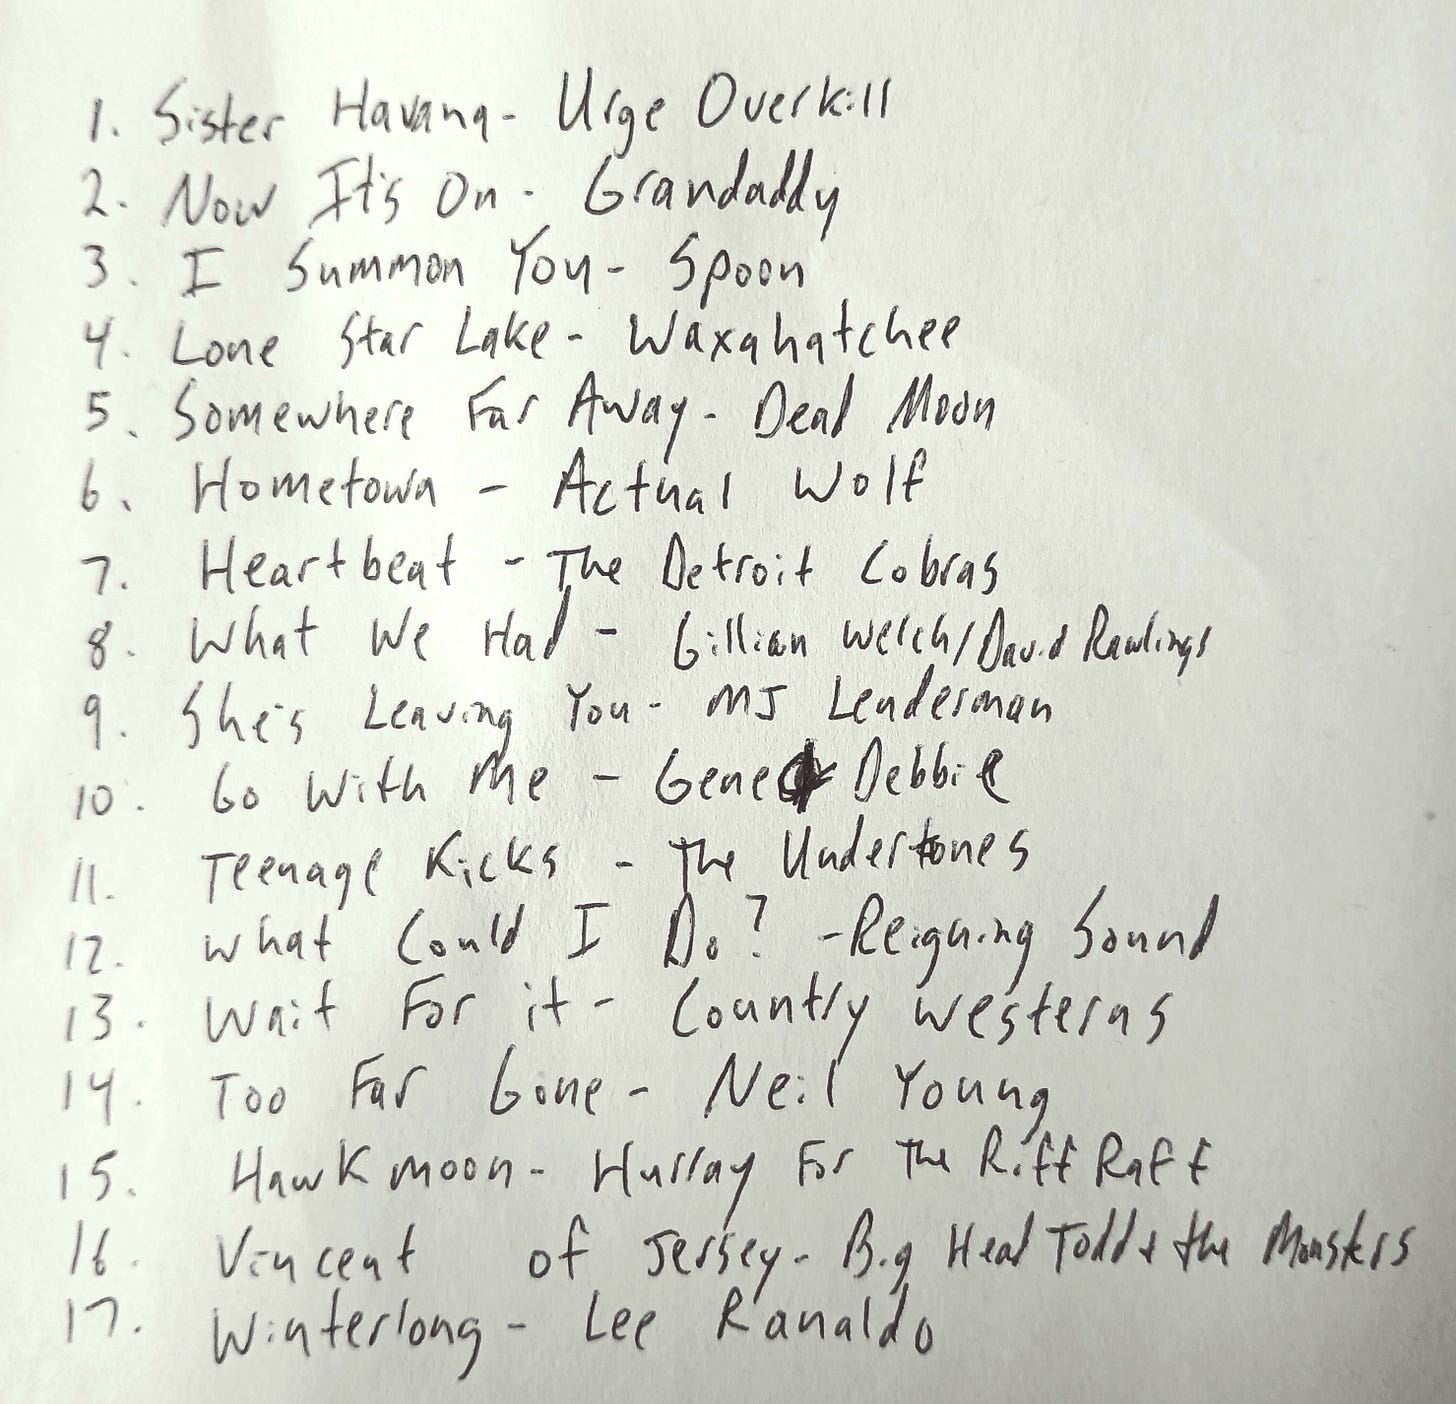 1. Sister Havana - Urge Overkill
2. Now It's On - Grandaddy
3. I Summon You - Spoon
4. Lone Star Lake - Waxahatchee
5. Somewhere Far Away - Dead Moon
6. Hometown - Actual Wolf
7. Heartbeat - The Detroit Cobras
8. What We Had - Gillian Welch/David Rawlings
9. She's Leaving You - MJ Lenderman
10. Go With Me - Gene & Debbie
11. Teenage Kicks - The Undertones
12. What Could I Do? - Reigning Sound
13. Wait For it - Country Westerns
14. Too Far Gone - Neil Young
15. Hawkmoon - Hurray For The Riff Raff
16. Vincent of Jersey - Big Head Todd & the Monsters
17. Winterlong - Lee Ranaldo